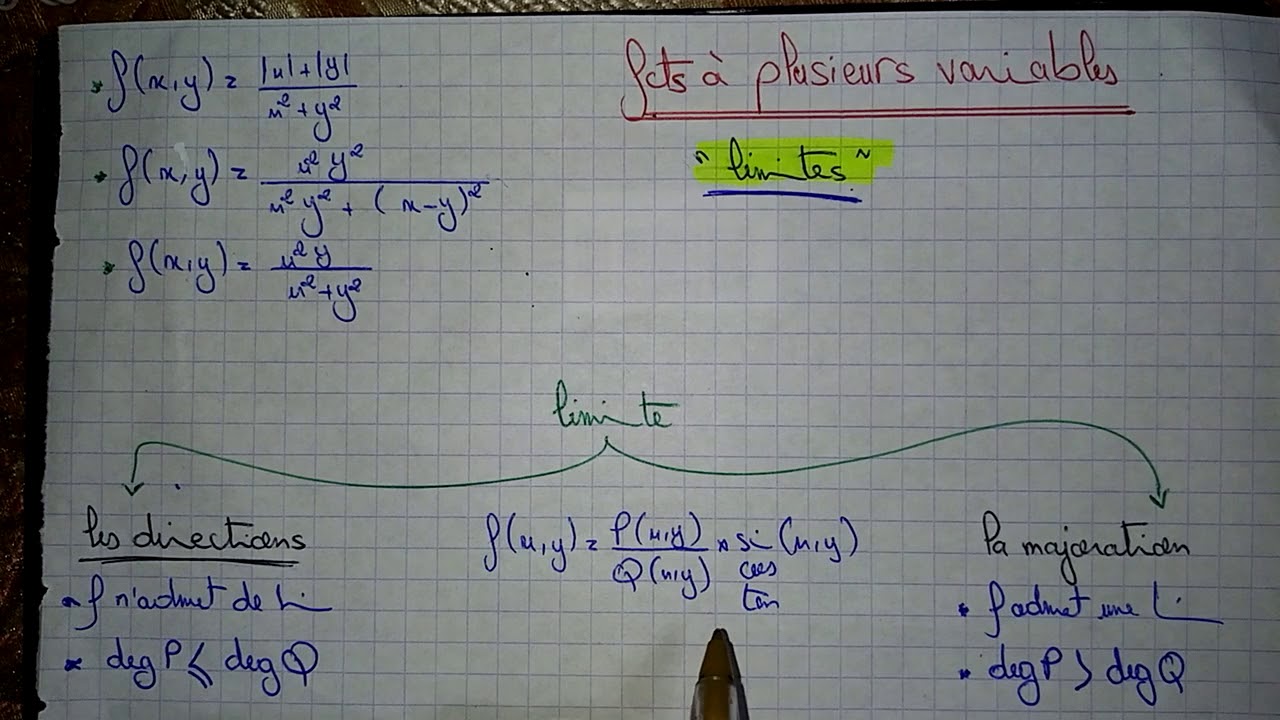 fcts à plusieurs variables
"limites"
* f(x,y) = |x|+|y| / x²+y²
* f(x,y) = x² y² / x² y² + (x-y)²
* f(x,y) = x² y / x²+y²
limite
les directions
• f n'admet de li
* deg P ⩽ deg Q
f(x,y) = P(x,y) / Q(x,y) * si (x,y)
cos
tan
la majoration
• f admet une li
• deg P > deg Q